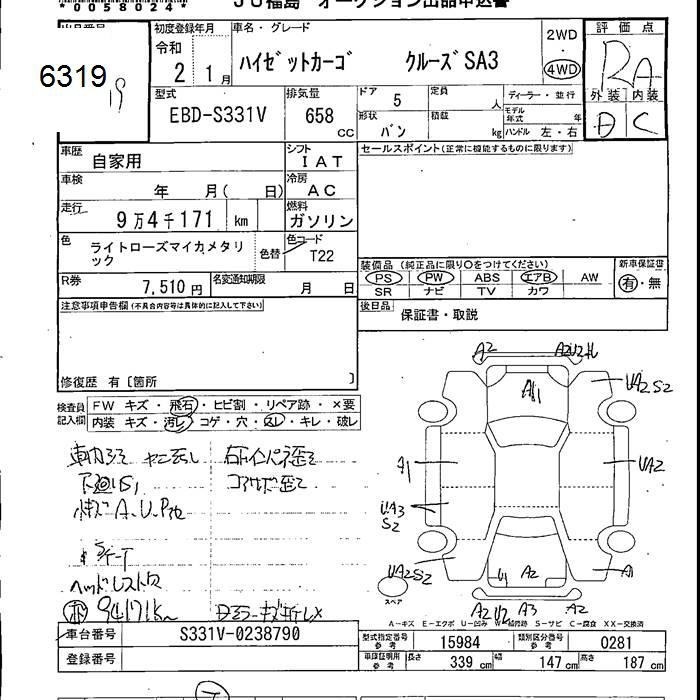 *0058024*
JU福島 オークション出品申込書
6319
初度登録年月 車名・グレード
令和 2 1月
ハイゼットカーゴ クルーズSA3
2WD ・ 4WD
評価点
RA
外装 内装
D C
型式 EBD-S331V
排気量 658 CC
ドア 5 定員 人
形状 バン 積載 kg
ディーラー・並行
モデル年式 年
ハンドル 左・右
車歴 自家用
シフト IAT
セールスポイント(正常に機能するものに限ります)
車検 年 月( 日)
冷房 AC
走行 9万4千171 km
燃料 ガソリン
色 ライトローズマイカメタリック
色替
色コード T22
装備品 (純正品に限り○をつけてください)
PS PW ABS エアB AW
SR ナビ TV カワ
新車保証書
有・無
R券 7,510円
名変通知期限 月 日
後日品 保証書・取説
注意事項申告欄(不具合内容等は具体的に記入して下さい)
修復歴 有〔箇所 〕
検査員記入欄
FW キズ・飛石・ヒビ割・リペア跡・×要
内装 キズ・汚レ・コゲ・穴・スレ・キレ・破レ
A2
A1
UA2 S2
A1
UA2
UA3
S2
UA2 S2
U1
A2
A1
A2 U2 A3 A2
下廻りS1
ヘッドレスト欠
94171km
スペア
A-キズ E-エクボ U-凹み W-補修跡 S-サビ C-腐食 XX-交換済
車台番号 S331V-0238790
登録番号
型式指定番号 参考 15984
類別区分番号 参考 0281
車庫証明用 参考 長さ 339 cm 幅 147 cm 高さ 187 cm